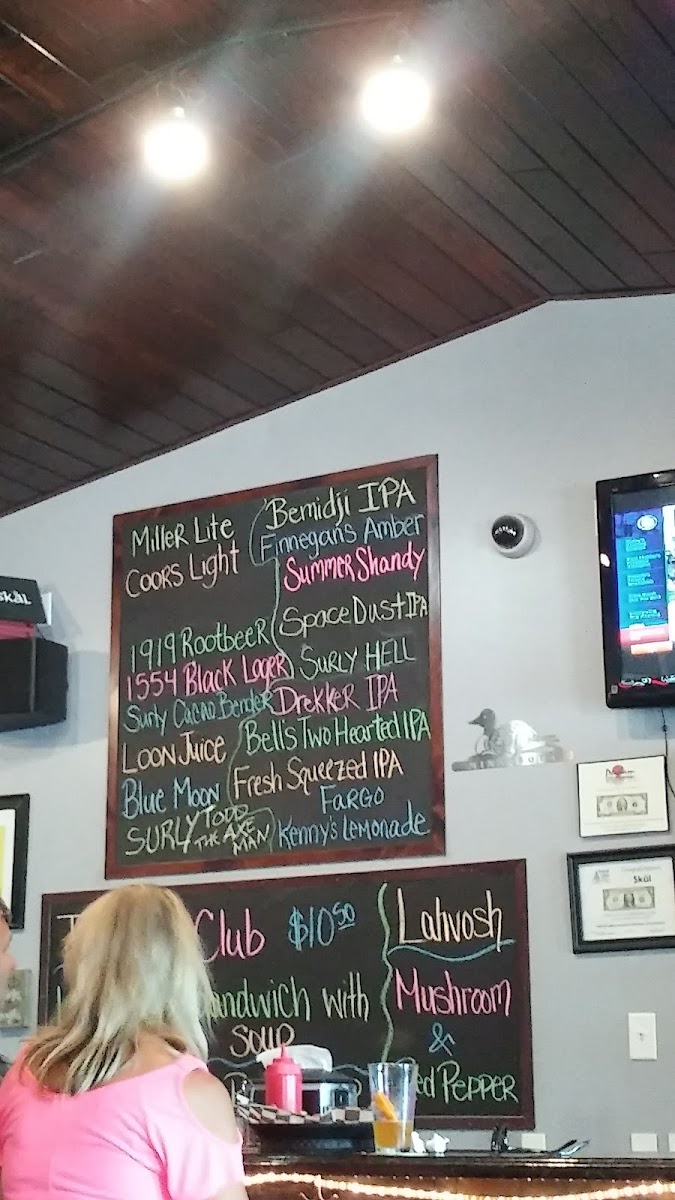 Miller Lite
Coors Light
1919 Rootbeer
1554 Black Lager
Surly Cacao Bender
Loon Juice
Blue Moon
Surly Todd
the Axe
Man
Bemidji IPA
Finnegans Amber
Summer Shandy
Space Dust IPA
Surly Hell
Drekker IPA
Bell's Two Hearted IPA
Fresh Squeezed IPA
Fargo
Kenny's Lemonade
Skål
Club $10.50
Sandwich with
Soup
Lahvosh
Mushroom
&
Red Pepper
Skål